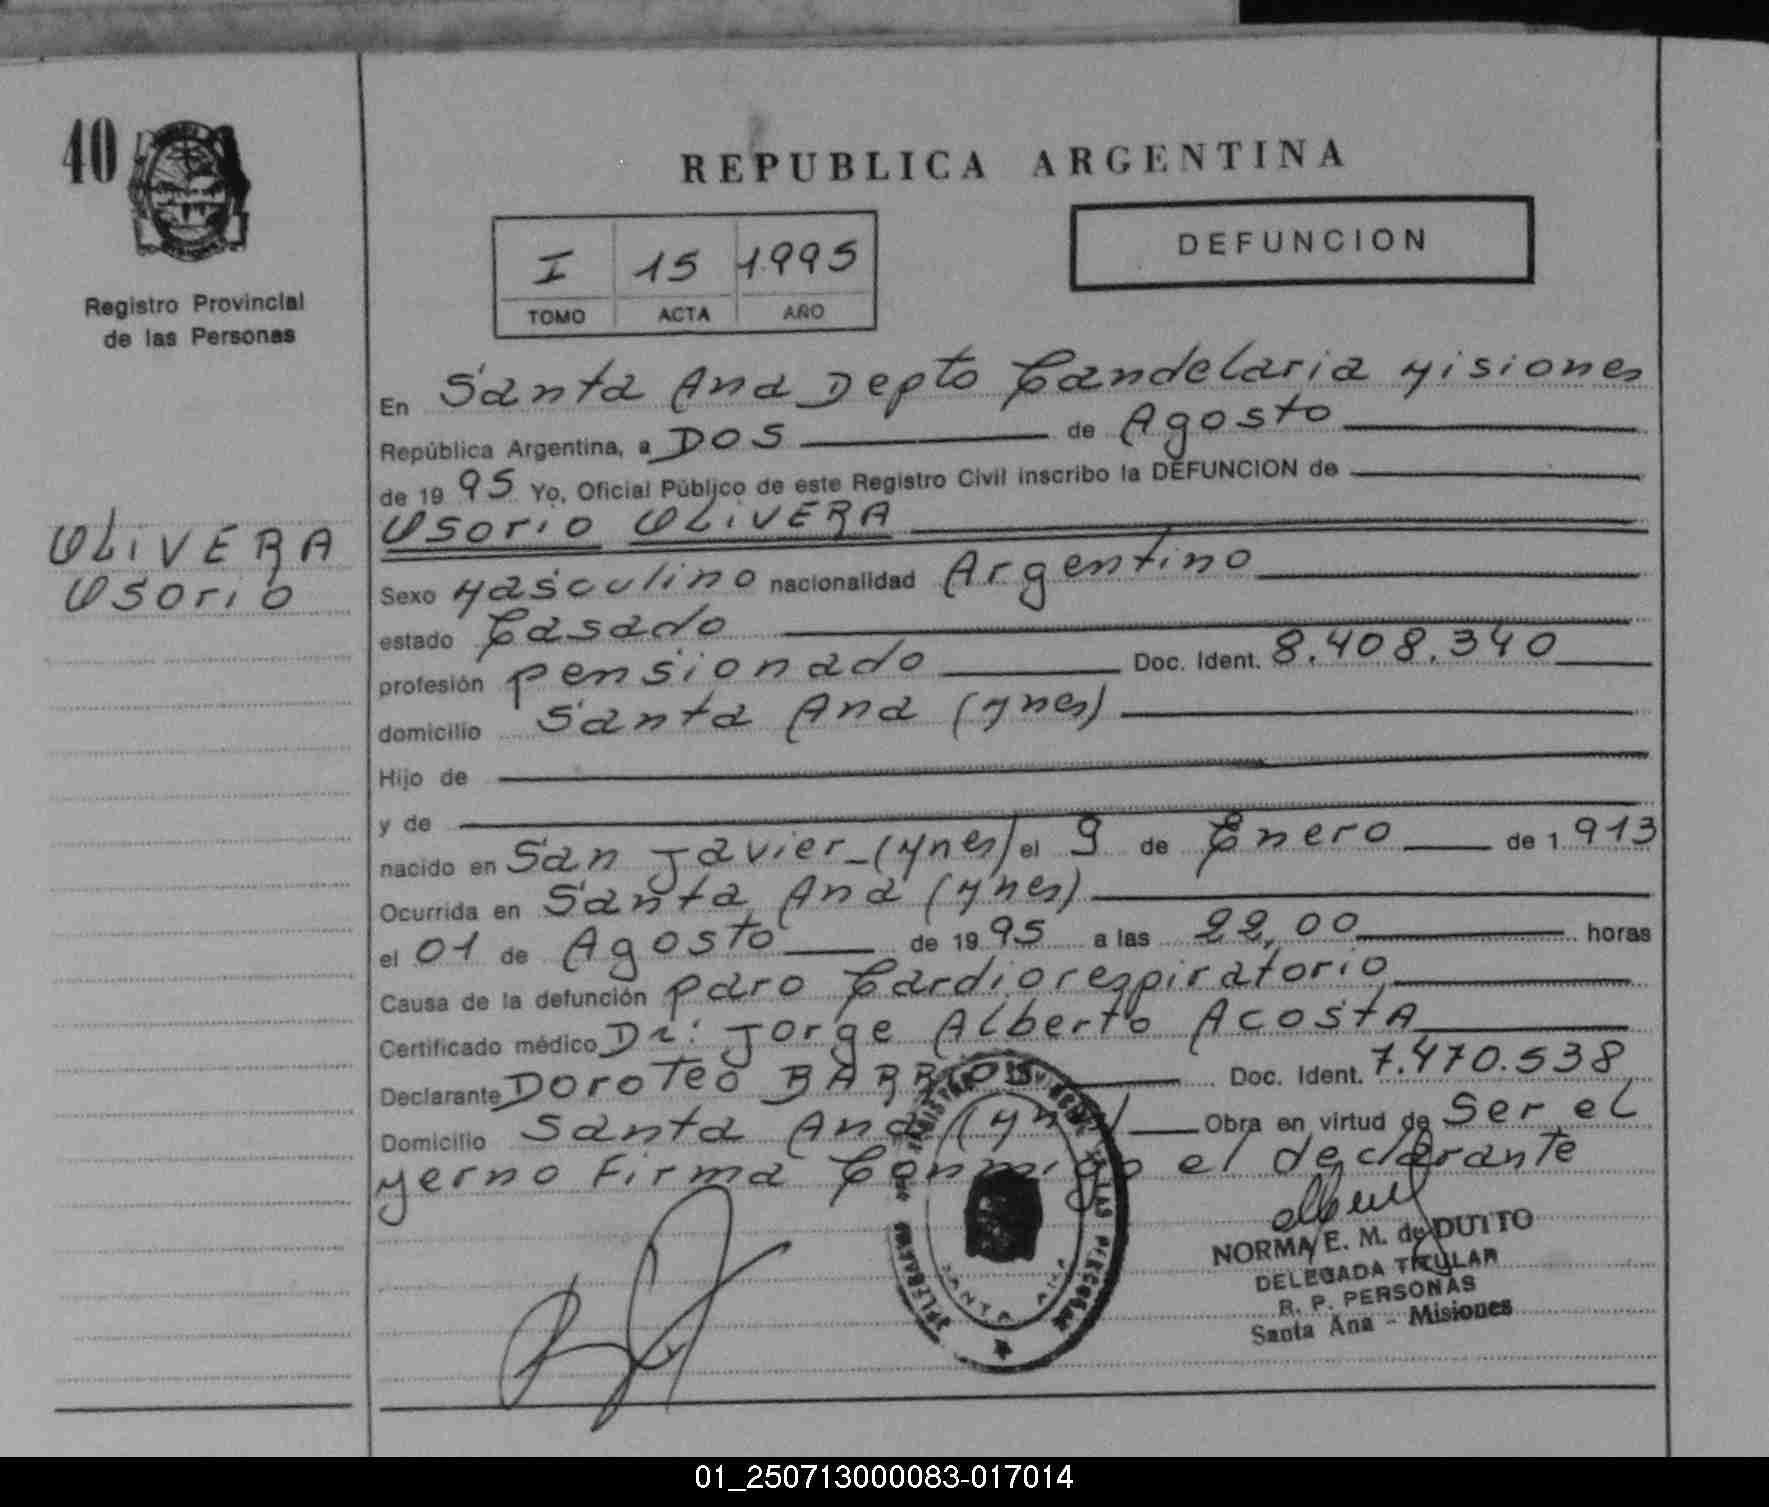 40
Registro Provincial
de las Personas
REPUBLICA ARGENTINA
I 15 1995
TOMO ACTA AÑO
DEFUNCION
OLIVERA
Osorio
En Santa Ana Depto Candelaria Misiones
República Argentina, a Dos de Agosto
de 1995 Yo, Oficial Público de este Registro Civil inscribo la DEFUNCION de
Osorio OLIVERA
Sexo Masculino nacionalidad Argentino
estado Casado
profesión pensionado Doc. Ident. 8.408.340
domicilio Santa Ana (Mnes)
Hijo de
y de
nacido en San Javier-(Mnes) el 9 de Enero de 1.913
Ocurrida en Santa Ana (Mnes)
el 01 de Agosto de 1995 a las 22,00 horas
Causa de la defunción paro Cardiorespiratorio
Certificado médico Dr: Jorge Alberto Acosta
Declarante Doroteo BARRIOS Doc. Ident. 7.470.538
Domicilio Santa Ana (Mnes) Obra en virtud de Ser el
yerno Firma Conmigo el declarante
NORMA E. M. de DUTTO
DELEGADA TITULAR
R. P. PERSONAS
Santa Ana - Misiones
SANTA ANA
01_250713000083-017014